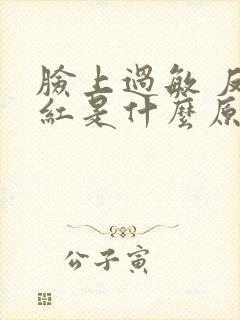 臉上過敏
紅是什麼原
公子寅